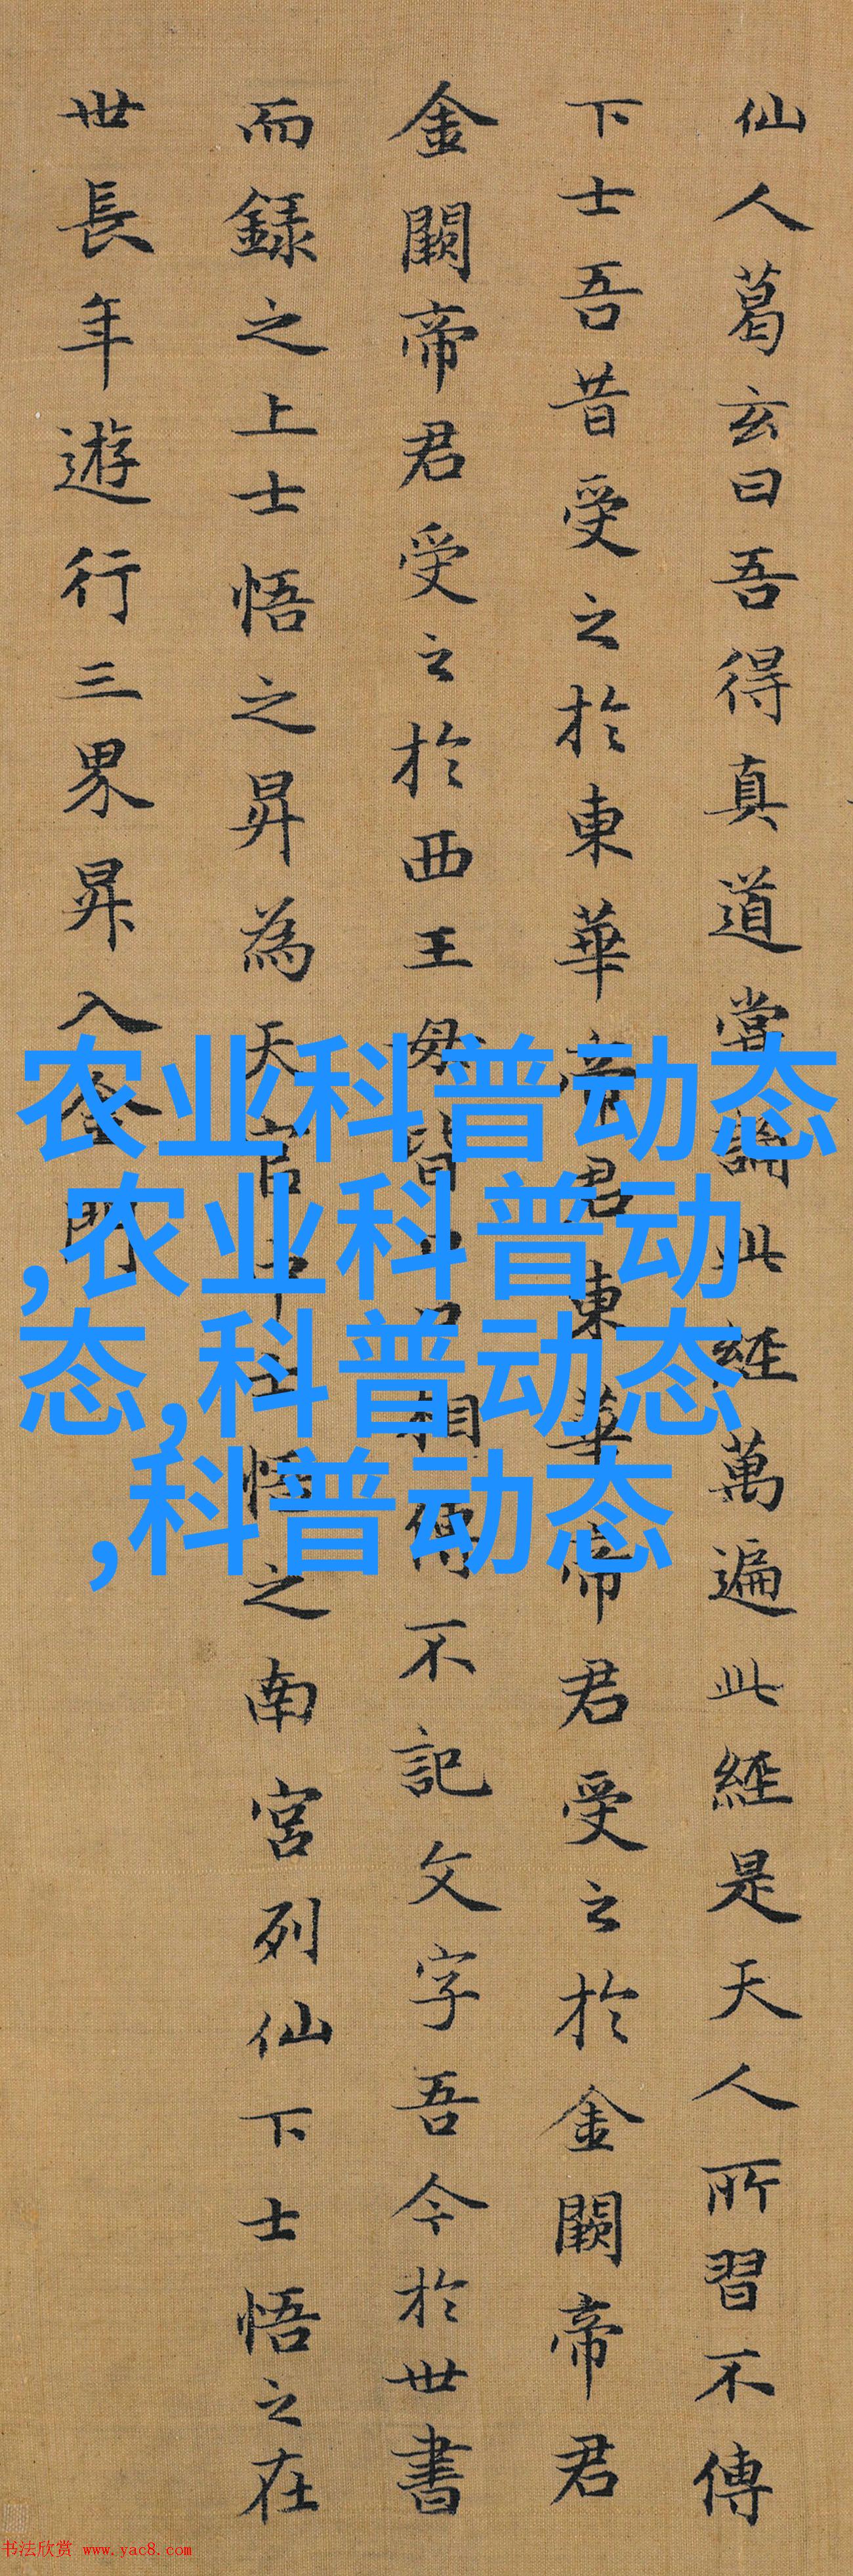 仙人葛玄曰吾得真道當誦此經萬遍此經是天人所習不傳
下士吾昔受之於東華帝君東華帝君受之於金闕帝君
金闕帝君受之於西王母皆口口相傳不記文字吾今於世書
而録之上士悟之昇為天官中士悟之南宮列仙下士悟之在
世長年遊行三界昇入金門
农业科普动态
,农业科普动
态,科普动态
,科普动态
书法欣赏 www.yac8.com